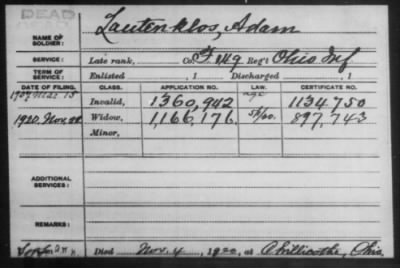 DEAD
DEAD
NAME OF SOLDIER: Lautenklos, Adam
SERVICE: Late rank, Co. F. 149 Reg't Ohio Inf
TERM OF SERVICE: Enlisted , 1 Discharged , 1
DATE OF FILING. CLASS. APPLICATION NO. LAW. CERTIFICATE NO.
1907 Mar 15 Invalid, 1360,942 age 1134,750
1920, Nov. Widow, 1,166,176 897,743
Minor,
ADDITIONAL SERVICES:
REMARKS:
Died Nov. 4, 1920, at Chillicothe, Ohio,